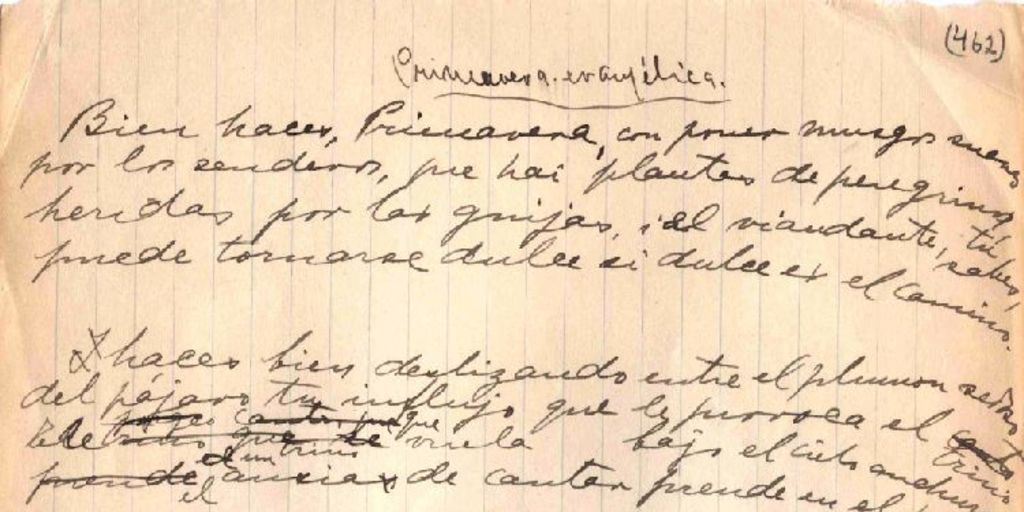 (462)
Primavera evangélica.
Bien haces, Primavera, con poner musgos suaves
por los senderos, que hai plantas de peregrinos
heridas por las guijas, i el viandante, tú sabes,
puede tornarse dulce si dulce es el camino.
I haces bien deslizando entre el plumon sedoso
del pájaro tu influjo que le provoca el canto trino
que vuela bajo el cielo
prende el ansias de cantar prende en el